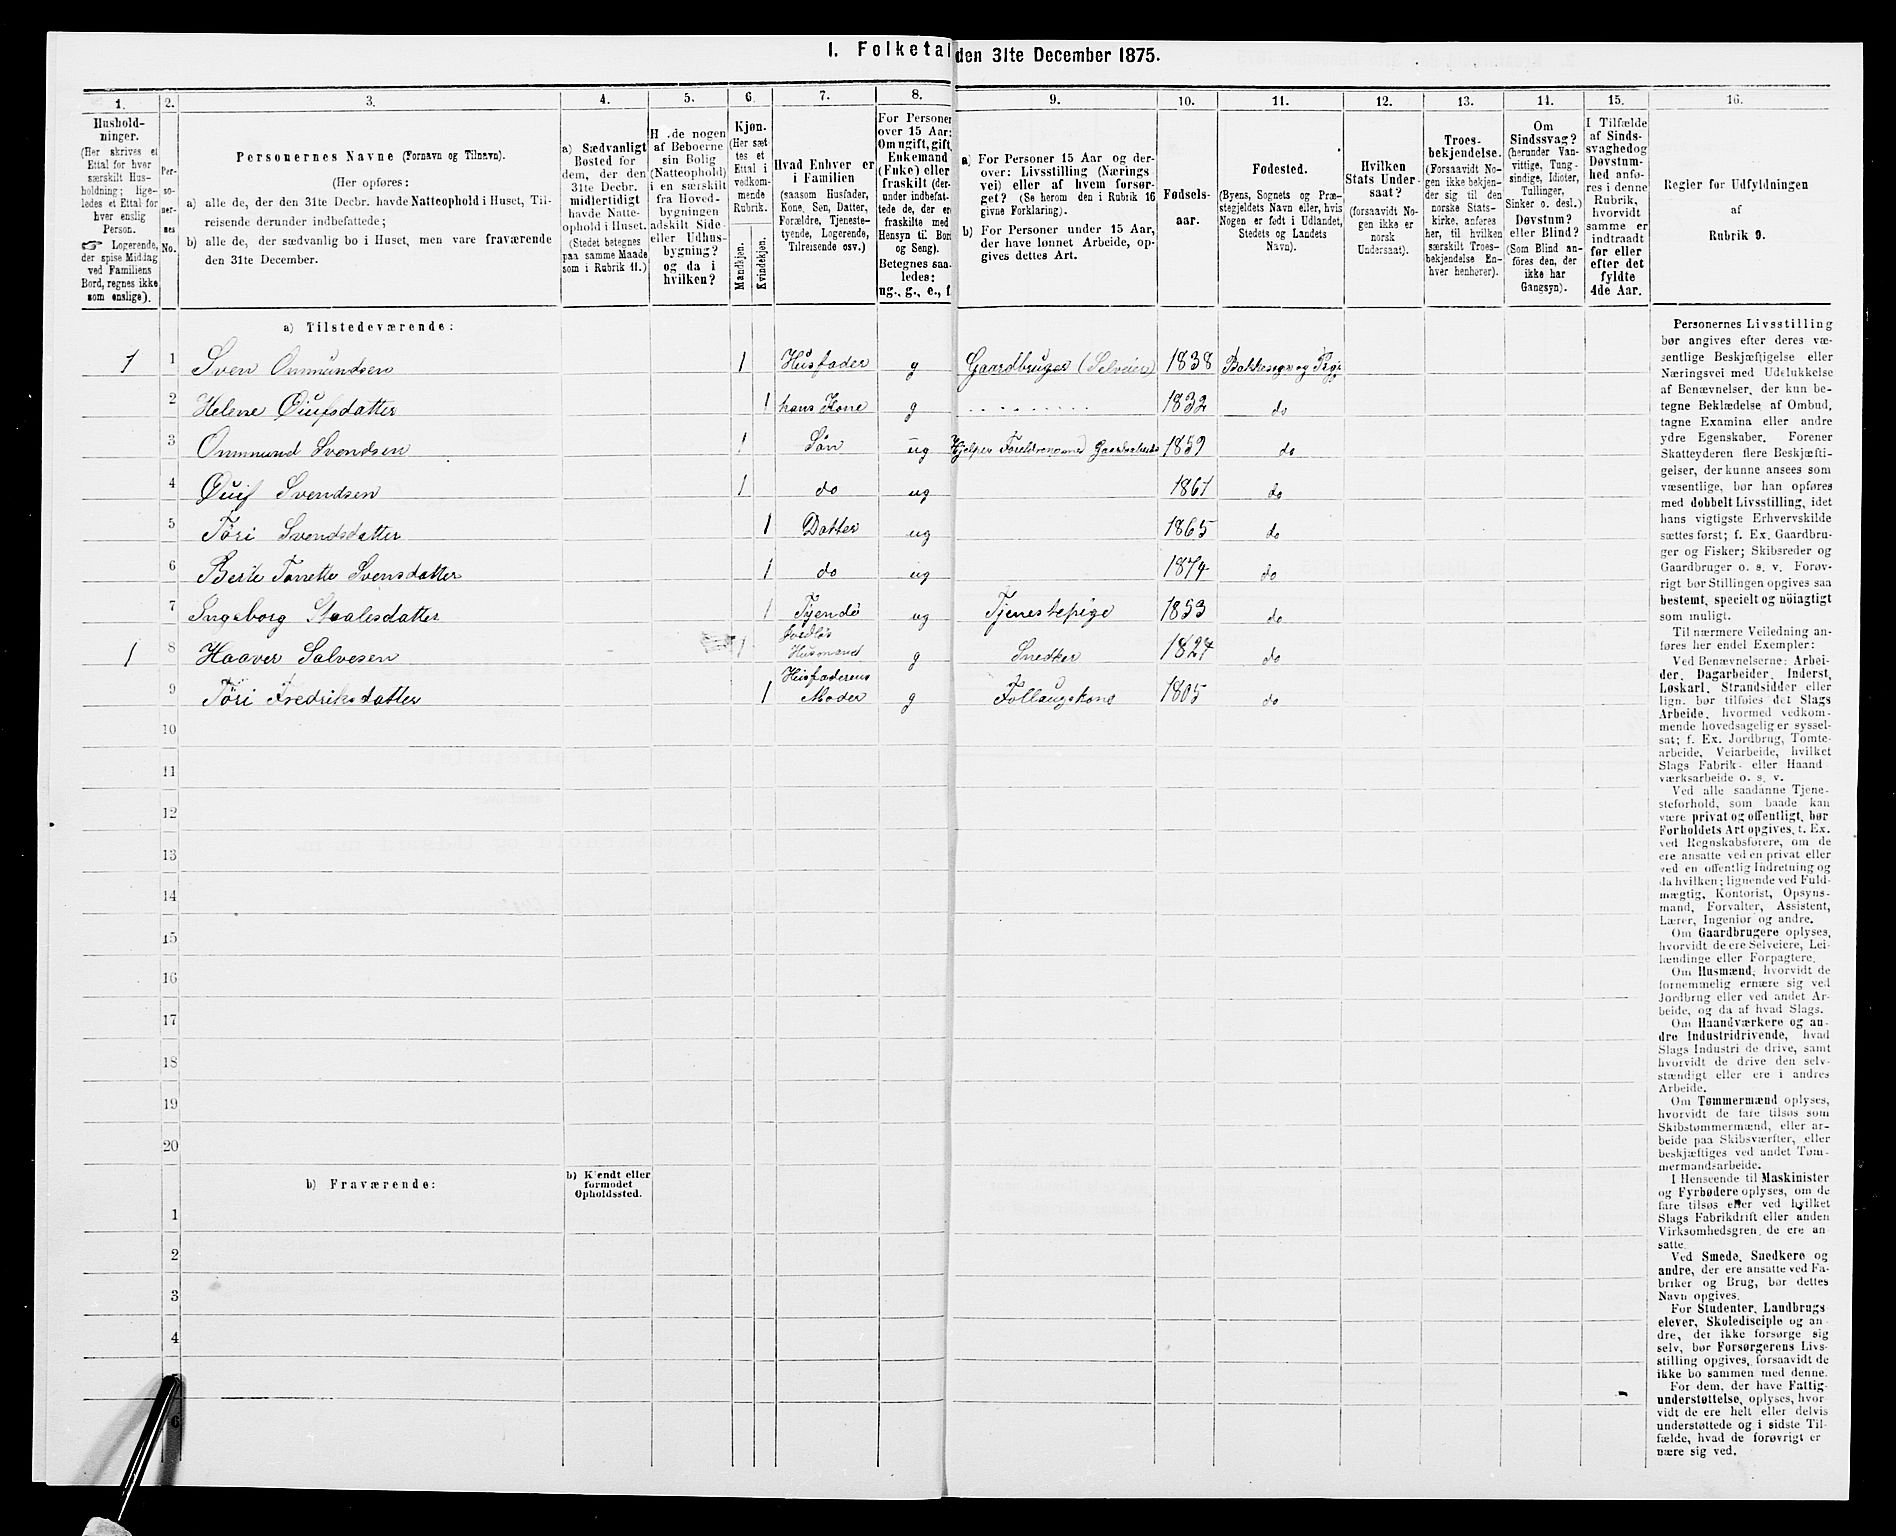 1. Folketal den 31te December 1875.
1. 2. 3. 4. 5. 6. 7. 8. 9. 10. 11. 12. 13. 14. 15. 16.
Hushold-
ninger.
(Her skrives et
Ettal for hver
særskilt Hus-
holdning; lige-
ledes et Ettal for
hver enslig
Person.
☞ Logerende,
der spise Middag
ved Familiens
Bord, regnes ikke
som enslige).
Per-
so-
ner-
nes
No.
Personernes Navne (Fornavn og Tilnavn).
(Her opføres:
a) alle de, der den 31te Decbr. havde Natteophold i Huset, Til-
reisende derunder indbefattede;
b) alle de, der sædvanlig bo i Huset, men vare fraværende
den 31te December.
a) Sædvanligt
Bosted for
dem, der den
31te Decbr.
midlertidigt
havde Natte-
ophold i Huset.
(Stedet betegnes
paa samme Maade
som i Rubrik 11.)
H de nogen
af Beboerne
sin Bolig
(Natteophold)
i en særskilt
fra Hoved-
bygningen
adskilt Side-
eller Udhus-
bygning?
og da i
hvilken?
Kjøn.
(Her sæt-
tes et
Ettal i
vedkom-
mende
Rubrik.
Mandkjøn.
Kvindekjøn.
Hvad Enhver er
i Familien
(saasom Husfader,
Kone, Søn, Datter,
Forældre, Tjeneste-
tyende, Logerende,
Tilreisende osv.)
For Personer
over 15 Aar:
Om ugift, gift,
Enkemand
(Enke) eller
fraskilt (der-
under indbefat-
tede de, der er
fraskilte med
Hensyn til Bord
og Seng).
Betegnes saa-
ledes:
ug., g., e., f.
a) For Personer 15 Aar og der-
over: Livsstilling (Nærings-
vei) eller af hvem forsør-
get? (Se herom den i Rubrik 16
givne Forklaring).
b) For Personer under 15 Aar,
der have lønnet Arbeide, op-
gives dettes Art.
Fødsels-
aar.
Fødested.
(Byens, Sognets og Præ-
stegjeldets Navn eller, hvis
Nogen er født i Udlandet,
Stedets og Landets
Navn).
Hvilken
Stats Under-
saat?
(forsaavidt No-
gen ikke er
norsk
Undersaat).
Troes-
bekjendelse.
(Forsaavidt No-
gen ikke bekjen-
der sig til den
norske Stats-
kirke, anføres
her, til hvilken
særskilt Troes-
bekjendelse En-
hver henhører).
Om
Sindssvag?
(herunder Van-
vittige, Tung-
sindige, Idioter,
Tullinger,
Sinker o. desl.)
Døvstum?
eller Blind?
(Som Blind an-
føres den, der
ikke har
Gangsyn).
I Tilfælde
af Sinds-
svaghed og
Døvstum-
hed anfø-
res i denne
Rubrik,
hvorvidt
samme er
indtraadt
før eller
efter det
fyldte
4de Aar.
Regler for Udfyldningen
af
Rubrik 9.
a) Tilstedeværende:
1 1 Sven Ommundsen 1 Husfader g Gaardbruger (Selveier) 1838 Bakkesogn og
2 Helene Øiufsdatter 1 hans Kone g 1832 do
3 Ommund Svendsen 1 Søn ug Hjelper Foreldrene med 1859 do
4 Øuif Svendsen 1 do ug 1861 do
5 Tøri Svendsdatter 1 Datter ug 1865 do
6 Berte Tonette Svensdatter 1 do ug 1874 do
7 Ingeborg Staalesdatter 1 Tjende ug Tjenestepige 1853 do
1 8 Haaver Salvesen 1 Jordløs Husmand g Snedker 1827 do
9 Tøri Fredriksdatter 1 Husfaderens Moder g Follaugskone 1805 do
10
11
12
13
14
15
16
17
18
19
20
b) Fraværende:
b) Kjendt eller
formodet
Opholdssted.
1
2
3
4
6
Personernes Livsstilling
bør angives efter deres væ-
sentlige Beskjæftigelse eller
Næringsvei med Udelukkelse
af Benævnelser, der kun be-
tegne Beklædelse af Ombud,
tagne Examina eller andre
ydre Egenskaber. Forener
Skatteyderen flere Beskjæfti-
gelser, der kunne ansees som
væsentlige, bør han opføres
med dobbelt Livsstilling, idet
hans vigtigste Erhvervskilde
sættes først; f. Ex. Gaardbru-
ger og Fisker; Skibsreder og
Gaardbruger o. s. v. Forøv-
rigt bør Stillingen opgives saa
bestemt, specielt og nöiagtigt
som muligt.
Til nærmere Veiledning an-
føres her endel Exempler:
Ved Benævnelserne: Arbei-
der, Dagarbeider, Inderst,
Løskarl, Strandsidder eller
lign. bør tilføies det Slags
Arbeide, hvormed vedkom-
mende hovedsagelig er syssel-
sat; f. Ex. Jordbrug, Tomte-
arbeide, Veiarbeide, hvilket
Slags Fabrik- eller Haand-
værksarbeide o. s. v.
Ved alle saadanne Tjene-
steforhold, som baade kan
være privat og offentligt, bør
Forholdets Art opgives, t. Ex.
ved Regnskabsførere, om de
ere ansatte ved en privat eller
ved en offentlig Indretning og
da hvilken; lignende ved Fuld-
mægtig, Kontorist, Opsyns-
mand, Forvalter, Assistent,
Lærer, Ingeniør og andre.
Om Gaardbrugere oplyses,
hvorvidt de ere Selveiere, Lei-
lændinge eller Forpagtere.
Om Husmænd, hvorvidt de
fornemmelig ernære sig ved
Jordbrug eller ved andet Ar-
beide, og da af hvad Slags.
Om Haandværkere og an-
dre Industridrivende, hvad
Slags Industri de drive, samt
hvorvidt de drive den selv-
stændigt eller ere i andres
Arbeide.
Om Tømmermænd oplyses,
hvorvidt de fare tilsøs som
Skibstømmermænd, eller ar-
beide paa Skibsværfter, eller
beskjæftiges ved andet Tøm-
mermandsarbeide.
I Henseende til Maskinister
og Fyrbødere oplyses, om de
fare tilsøs eller ved hvilket
Slags Fabrikdrift eller anden
Virksomhedsgren de ere an-
satte.
Ved Smede, Snedkere og
andre, der ere ansatte ved Fa-
briker og Brug, bør dettes
Navn opgives.
For Studenter, Landbrugs-
elever, Skoledisciple og an-
dre, der ikke forsørge sig
selv, bør Forsørgerens Livs-
stilling opgives, forsaavidt de
ikke bo sammen med denne.
For dem, der have Fattig-
understøttelse, oplyses, hvor-
vidt de ere helt eller delvis
understøttede og i sidste Til-
fælde, hvad de forøvrigt er-
nære sig ved.